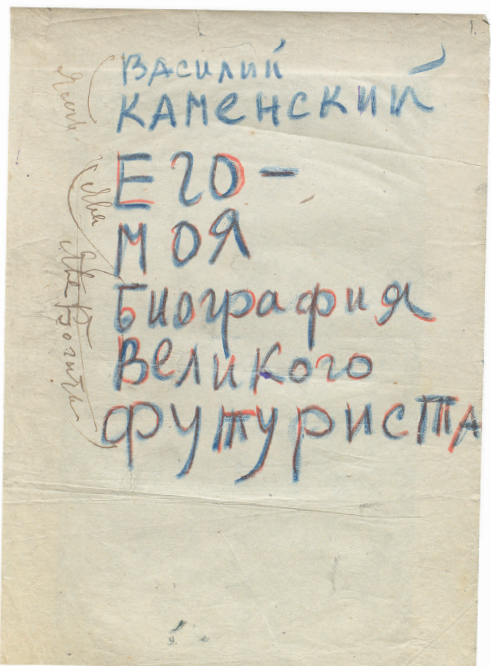 Василий
Каменский
Его –
Моя
Биография
Великого
Футуриста